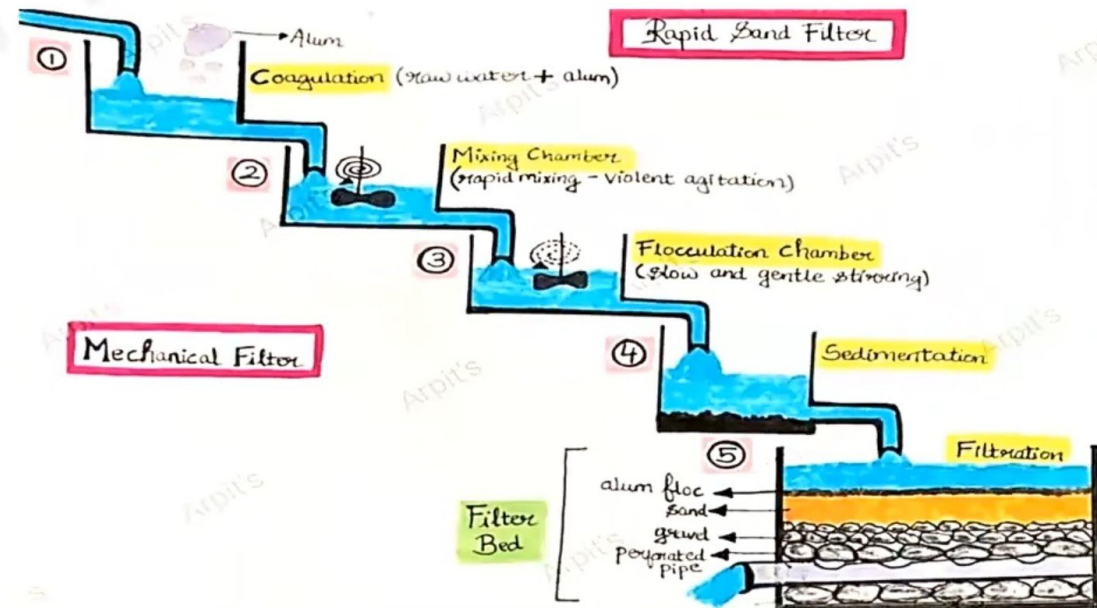 Rapid Sand Filter
① → Alum
Coagulation (raw water + alum)
② Mixing Chamber
(rapid mixing - violent agitation)
③ Flocculation Chamber
(slow and gentle stirring)
Mechanical Filter
④ Sedimentation
⑤ Filtration
Filter
Bed
alum floc
sand
gravel
perforated
pipe
Arpit's
Arpit's
Arpit's
Arpit's
Arpit's
Arpit's
Arpit's
Arpit's
Arpit's